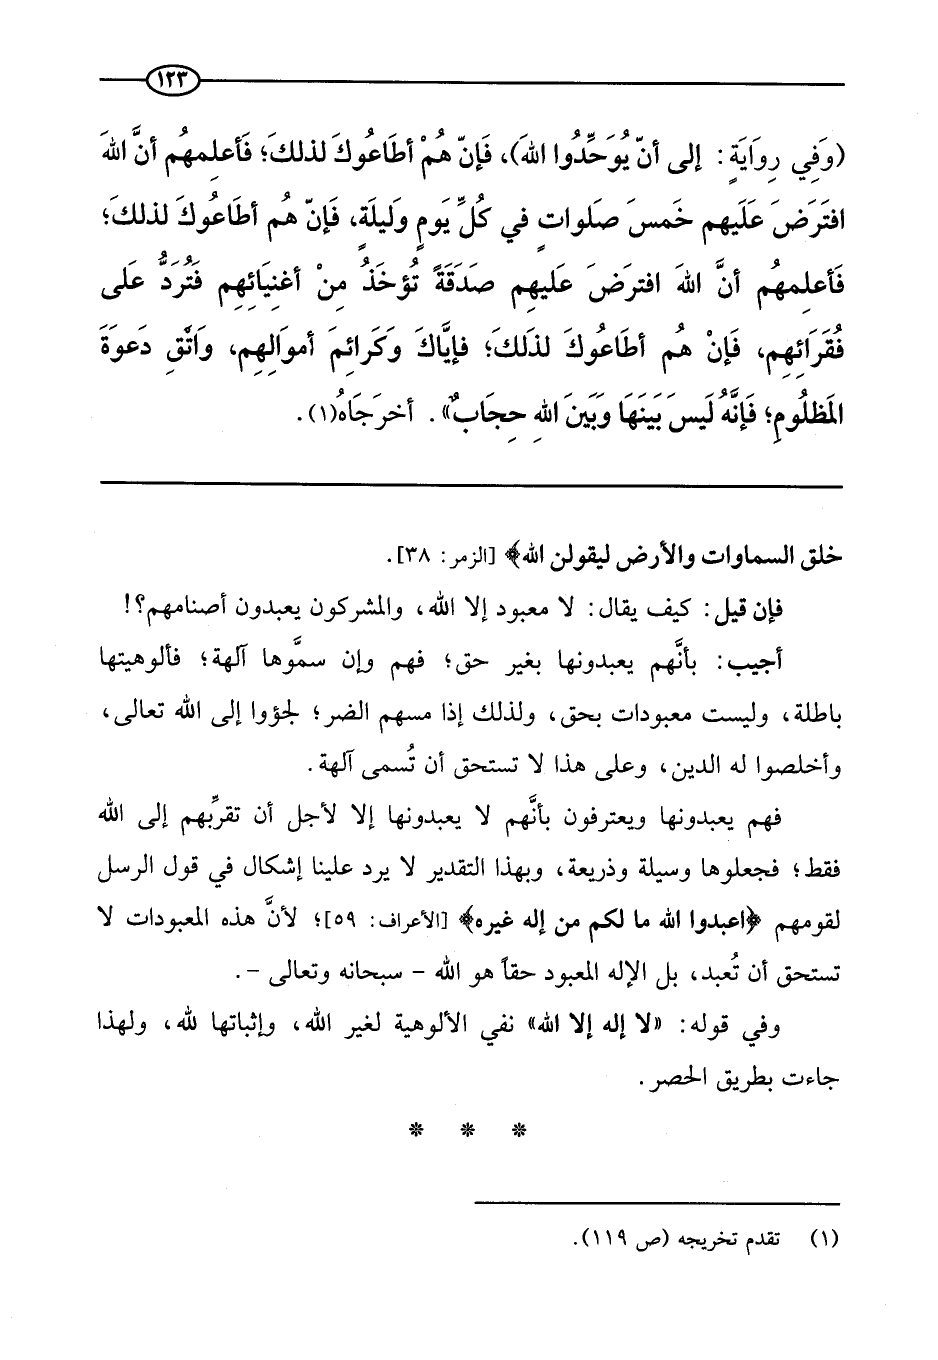 ١٢٣
(وَفِي رِوَايَةٍ: إلى أنّ يُوَحِّدُوا اللهَ)، فَإنّ هُمْ أطَاعُوكَ لذلكَ؛ فَأعلِمهُم أنَّ اللهَ
افتَرَضَ عَلَيهِم خَمسَ صَلواتٍ في كُلِّ يَومٍ وَليلَةٍ، فَإنّ هُم أطَاعُوكَ لذلكَ؛
فَأعلِمهُم أنَّ اللهَ افترضَ عَليهِم صَدَقَةً تُؤخَذُ مِنْ أغنِيَائِهِم فَتُرَدُّ عَلى
فُقَرَائِهِم، فَإنْ هُم أطاعُوكَ لذَلكَ؛ فإيَّاكَ وَكَرائِمَ أموَالِهِم، وَاتْقِ دَعوَةَ
المَظلُومِ؛ فَإنَّهُ لَيسَ بَينَهَا وَبَينَ اللهِ حِجَابٌ». أخرَجَاهُ(١).
خلق السماوات والأرض ليقولن الله﴾ [الزمر: ٣٨].
فإن قيل: كيف يقال: لا معبود إلا الله، والمشركون يعبدون أصنامهم؟!
أجيب: بأنَّهم يعبدونها بغير حق؛ فهم وإن سمَّوها آلهة؛ فألوهيتها
باطلة، وليست معبودات بحق، ولذلك إذا مسهم الضر؛ لجؤوا إلى الله تعالى،
وأخلصوا له الدين، وعلى هذا لا تستحق أن تُسمى آلهة.
فهم يعبدونها ويعترفون بأنَّهم لا يعبدونها إلا لأجل أن تقرِّبهم إلى الله
فقط؛ فجعلوها وسيلة وذريعة، وبهذا التقدير لا يرد علينا إشكال في قول الرسل
لقومهم ﴿اعبدوا الله ما لكم من إله غيره﴾ [الأعراف: ٥٩]؛ لأنَّ هذه المعبودات لا
تستحق أن تُعبد، بل الإله المعبود حقاً هو الله - سبحانه وتعالى -.
وفي قوله: «لا إله إلا الله» نفي الألوهية لغير الله، وإثباتها لله، ولهذا
جاءت بطريق الحصر.
* * *
(١) تقدم تخريجه (ص ١١٩).